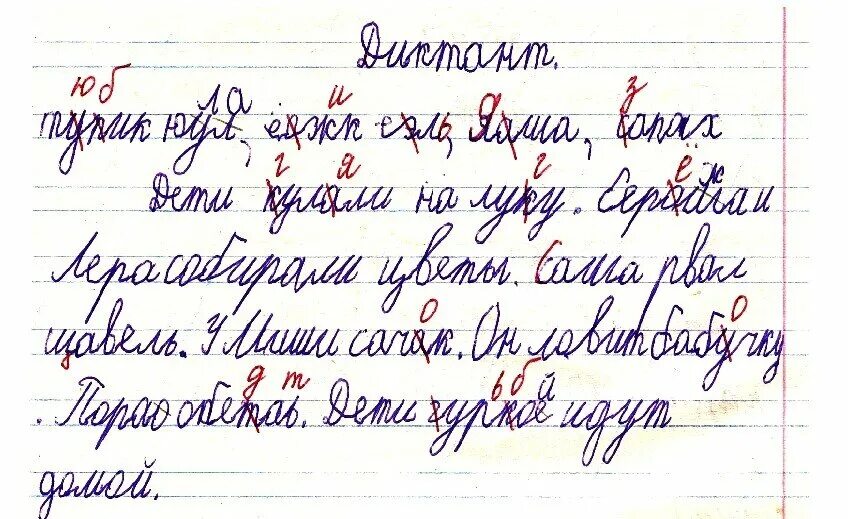 Диктант.
ю б ла и з
тупик юул, ёжк сэль, Яаша, сапах
г я г ё ж
Дети кулали на луку. Серожа и
Лера собирали цветы. Саша рвал
о о
щавель. У Миши сачак. Он ловит бабучку
д т ь б й
. Пора обетаь. Дети гуркой идут
домой.